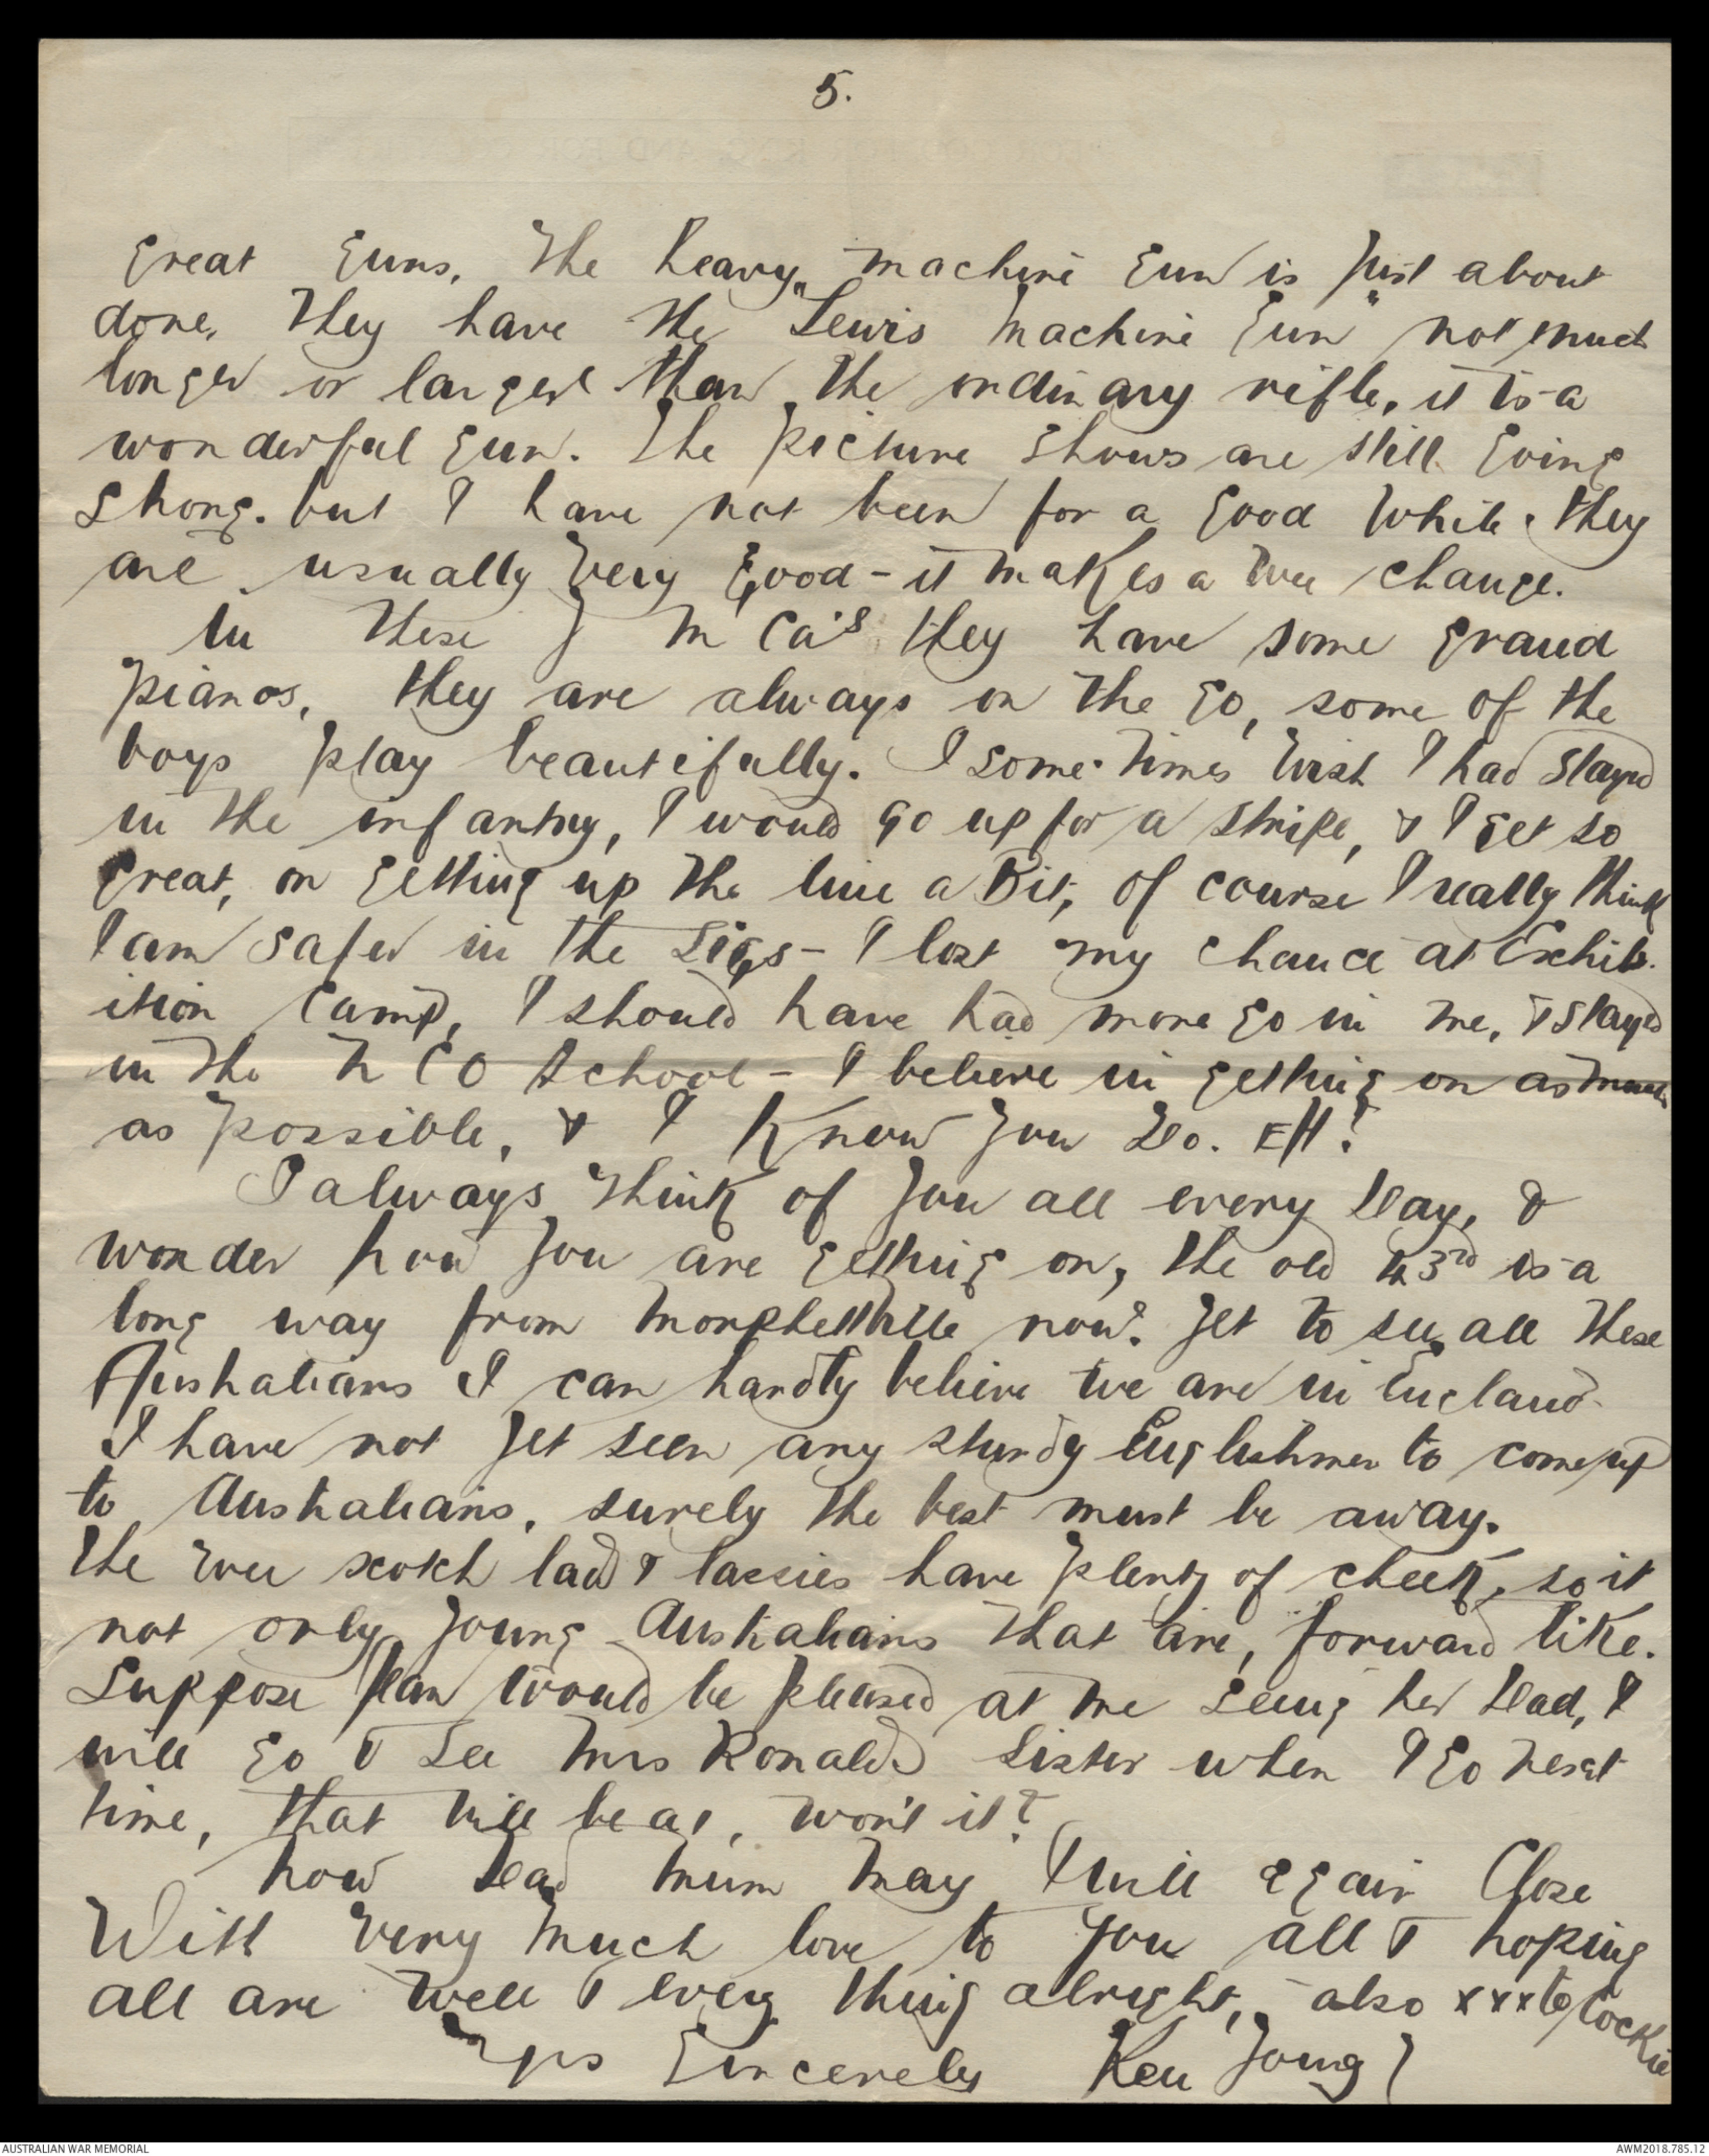 5.
great guns. The heavy machine gun is just about
done. They have the "Lewis Machine Gun" not much
longer or larger than the ordinary rifle, it is a
wonderful gun. The picture shows are still going
strong. but I have not been for a good while, they
are usually very good - it makes a wee change.
In these Y M Ca's they have some grand
pianos, they are always on the go, some of the
boys play beautifully. I some times wish I had stayed
in the infantry, I would go up for a stripe, & I get so
great, on getting up the line a Bit, of course I really think
I am safer in the Sigs - I lost my chance at Exhib-
ition Camp, I should have had more go in me, & stayed
in the N C O School - I believe in getting on as much
as possible, & I know you do. EH?
I always think of you all every day, &
wonder how you are getting on, the old 43rd is a
long way from Morphettville now. Yet to see all these
Australians I can hardly believe we are in England.
I have not yet seen any sturdy Englishmen to come up
to Australians, surely the best must be away.
The wee scotch lads & lassies have plenty of cheek, so it
not only young Australians that are, forward like.
Suppose would be pleased at me seeing her dad, I
will go & see Mrs Ronalds Sister when I go next
time, that will be won't it?
Now Dad Mum May I will again Close
With very much love to you all & hoping
all are well & every thing alright, also xxx to Cockie
Yrs Sincerely Ken Young
AUSTRALIAN WAR MEMORIAL
AWM2018.785.12